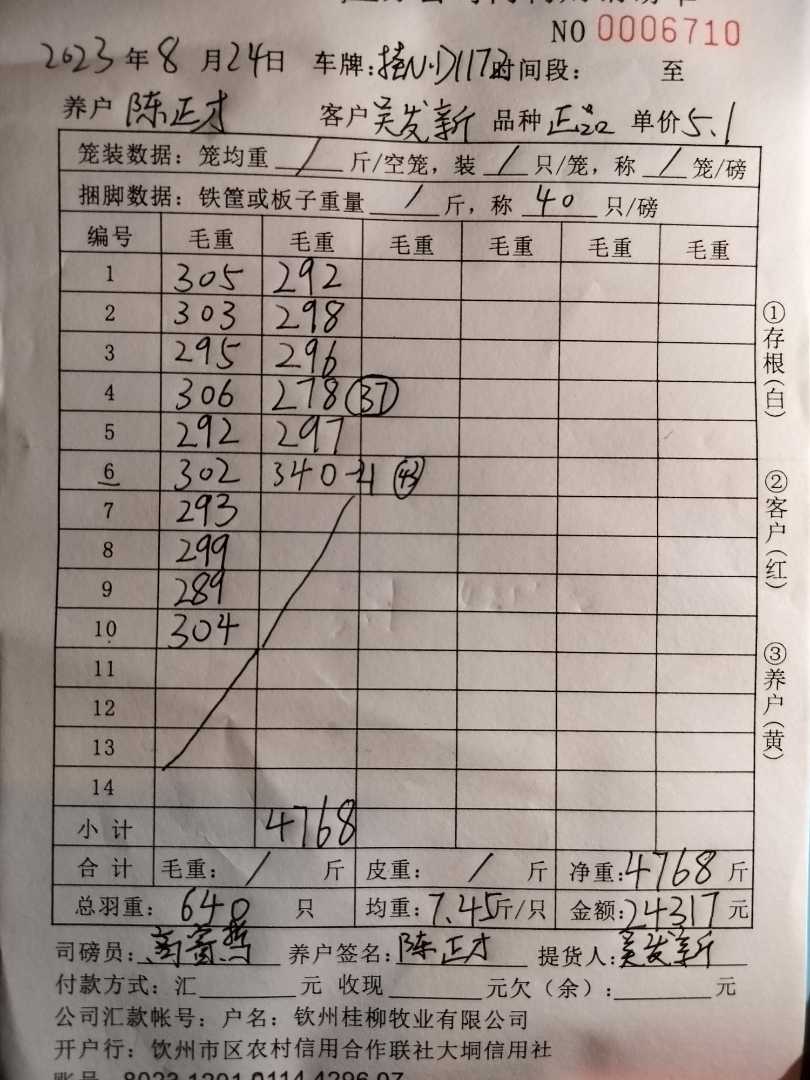 NO 0006710
2023年8月24日 车牌: 时间段: 至
养户 陈正才 客户 吴发新 品种 正品 单价 5.1
笼装数据: 笼均重 / 斤/空笼, 装 / 只/笼, 称 / 笼/磅
捆脚数据: 铁筐或板子重量 / 斤, 称 40 只/磅
编号 毛重 毛重 毛重 毛重 毛重 毛重
1 305 292
2 303 298
3 295 296
4 306 278 37
5 292 297
6 302 340 43
7 293
8 299
9 289
10 304
11
12
13
14
小计 4768
合计 毛重: / 斤 皮重: / 斤 净重: 4768 斤
总羽重: 640 只 均重: 7.45 斤/只 金额: 24317 元
司磅员: 养户签名: 陈正才 提货人: 吴发新
付款方式: 汇 元 收现 元欠(余): 元
公司汇款帐号: 户名: 钦州桂柳牧业有限公司
开户行: 钦州市区农村信用合作联社大垌信用社
①存根(白)
②客户(红)
③养户(黄)